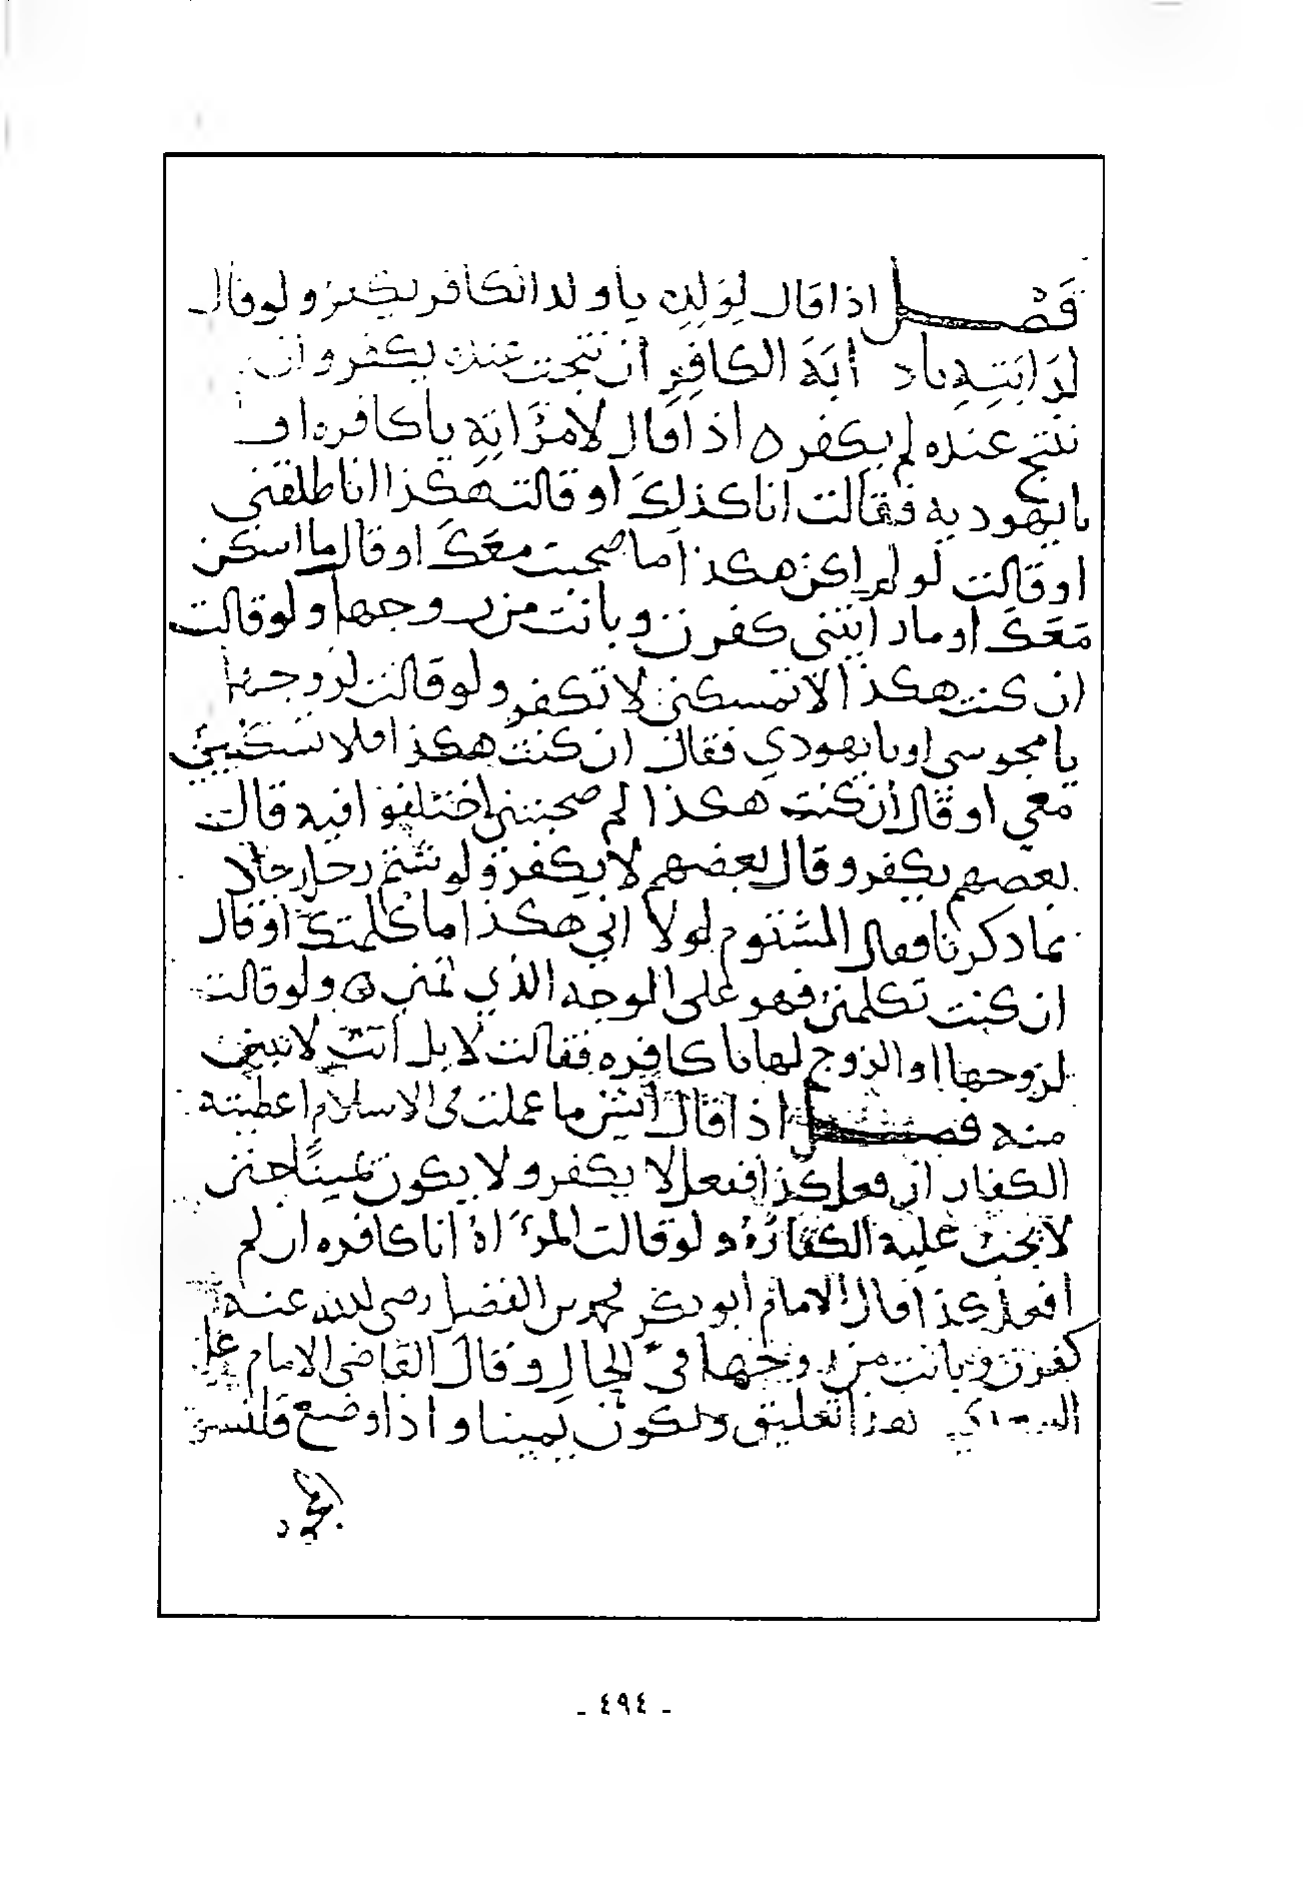 فصل اذا قال لولده يا ولد الكافر يكفر ولو قال
لدابته يا دابة الكافر ان نتجت عنده يكفر وان
نتج عنده لم يكفر ه اذا قال لامرأته يا كافره او
يا يهوديه فقالت انا كذلك او قالت هكذا انا طلقني
او قالت لو لم اكن هكذا ما صحبت معك او قال ما اسكن
معك او ما رايتني كفرت وبانت من زوجها ولو قالت
ان كنت هكذا لا تمسكني لا تكفر ولو قالت لزوجها
يا مجوسي او يا يهودي فقال ان كنت هكذا فلا تسكنين
معي او قال ان كنت هكذا لم صحبتني اختلفوا فيه قال
بعضهم يكفر وقال بعضهم لا يكفر ولو شتم رجل رجلا
بما ذكرنا فقال المشتوم لولا اني هكذا ما كلمتك او قال
ان كنت تكلمني فهو على الوجه الذي ه ولو قالت
لزوجها او الزوج لها يا كافره فقالت لا بل انت لا تبين
منه فصل اذا قال ما عملت في الاسلام اعطيته
الكفار ان فعل كذا ففعل لا يكفر ولا يكون يمينا حتى
لا يجب عليه الكفارة ولو قالت المرأة انا كافره ان لم
افعل كذا قال الامام ابو بكر محمد بن الفضل رضى الله عنه
كفرت وبانت من زوجها في الحال وقال القاضى الامام على
السغدي هذا تعليق ويكون يمينا واذا وضع قلنسوة
المجود
- ٤٩٤ -